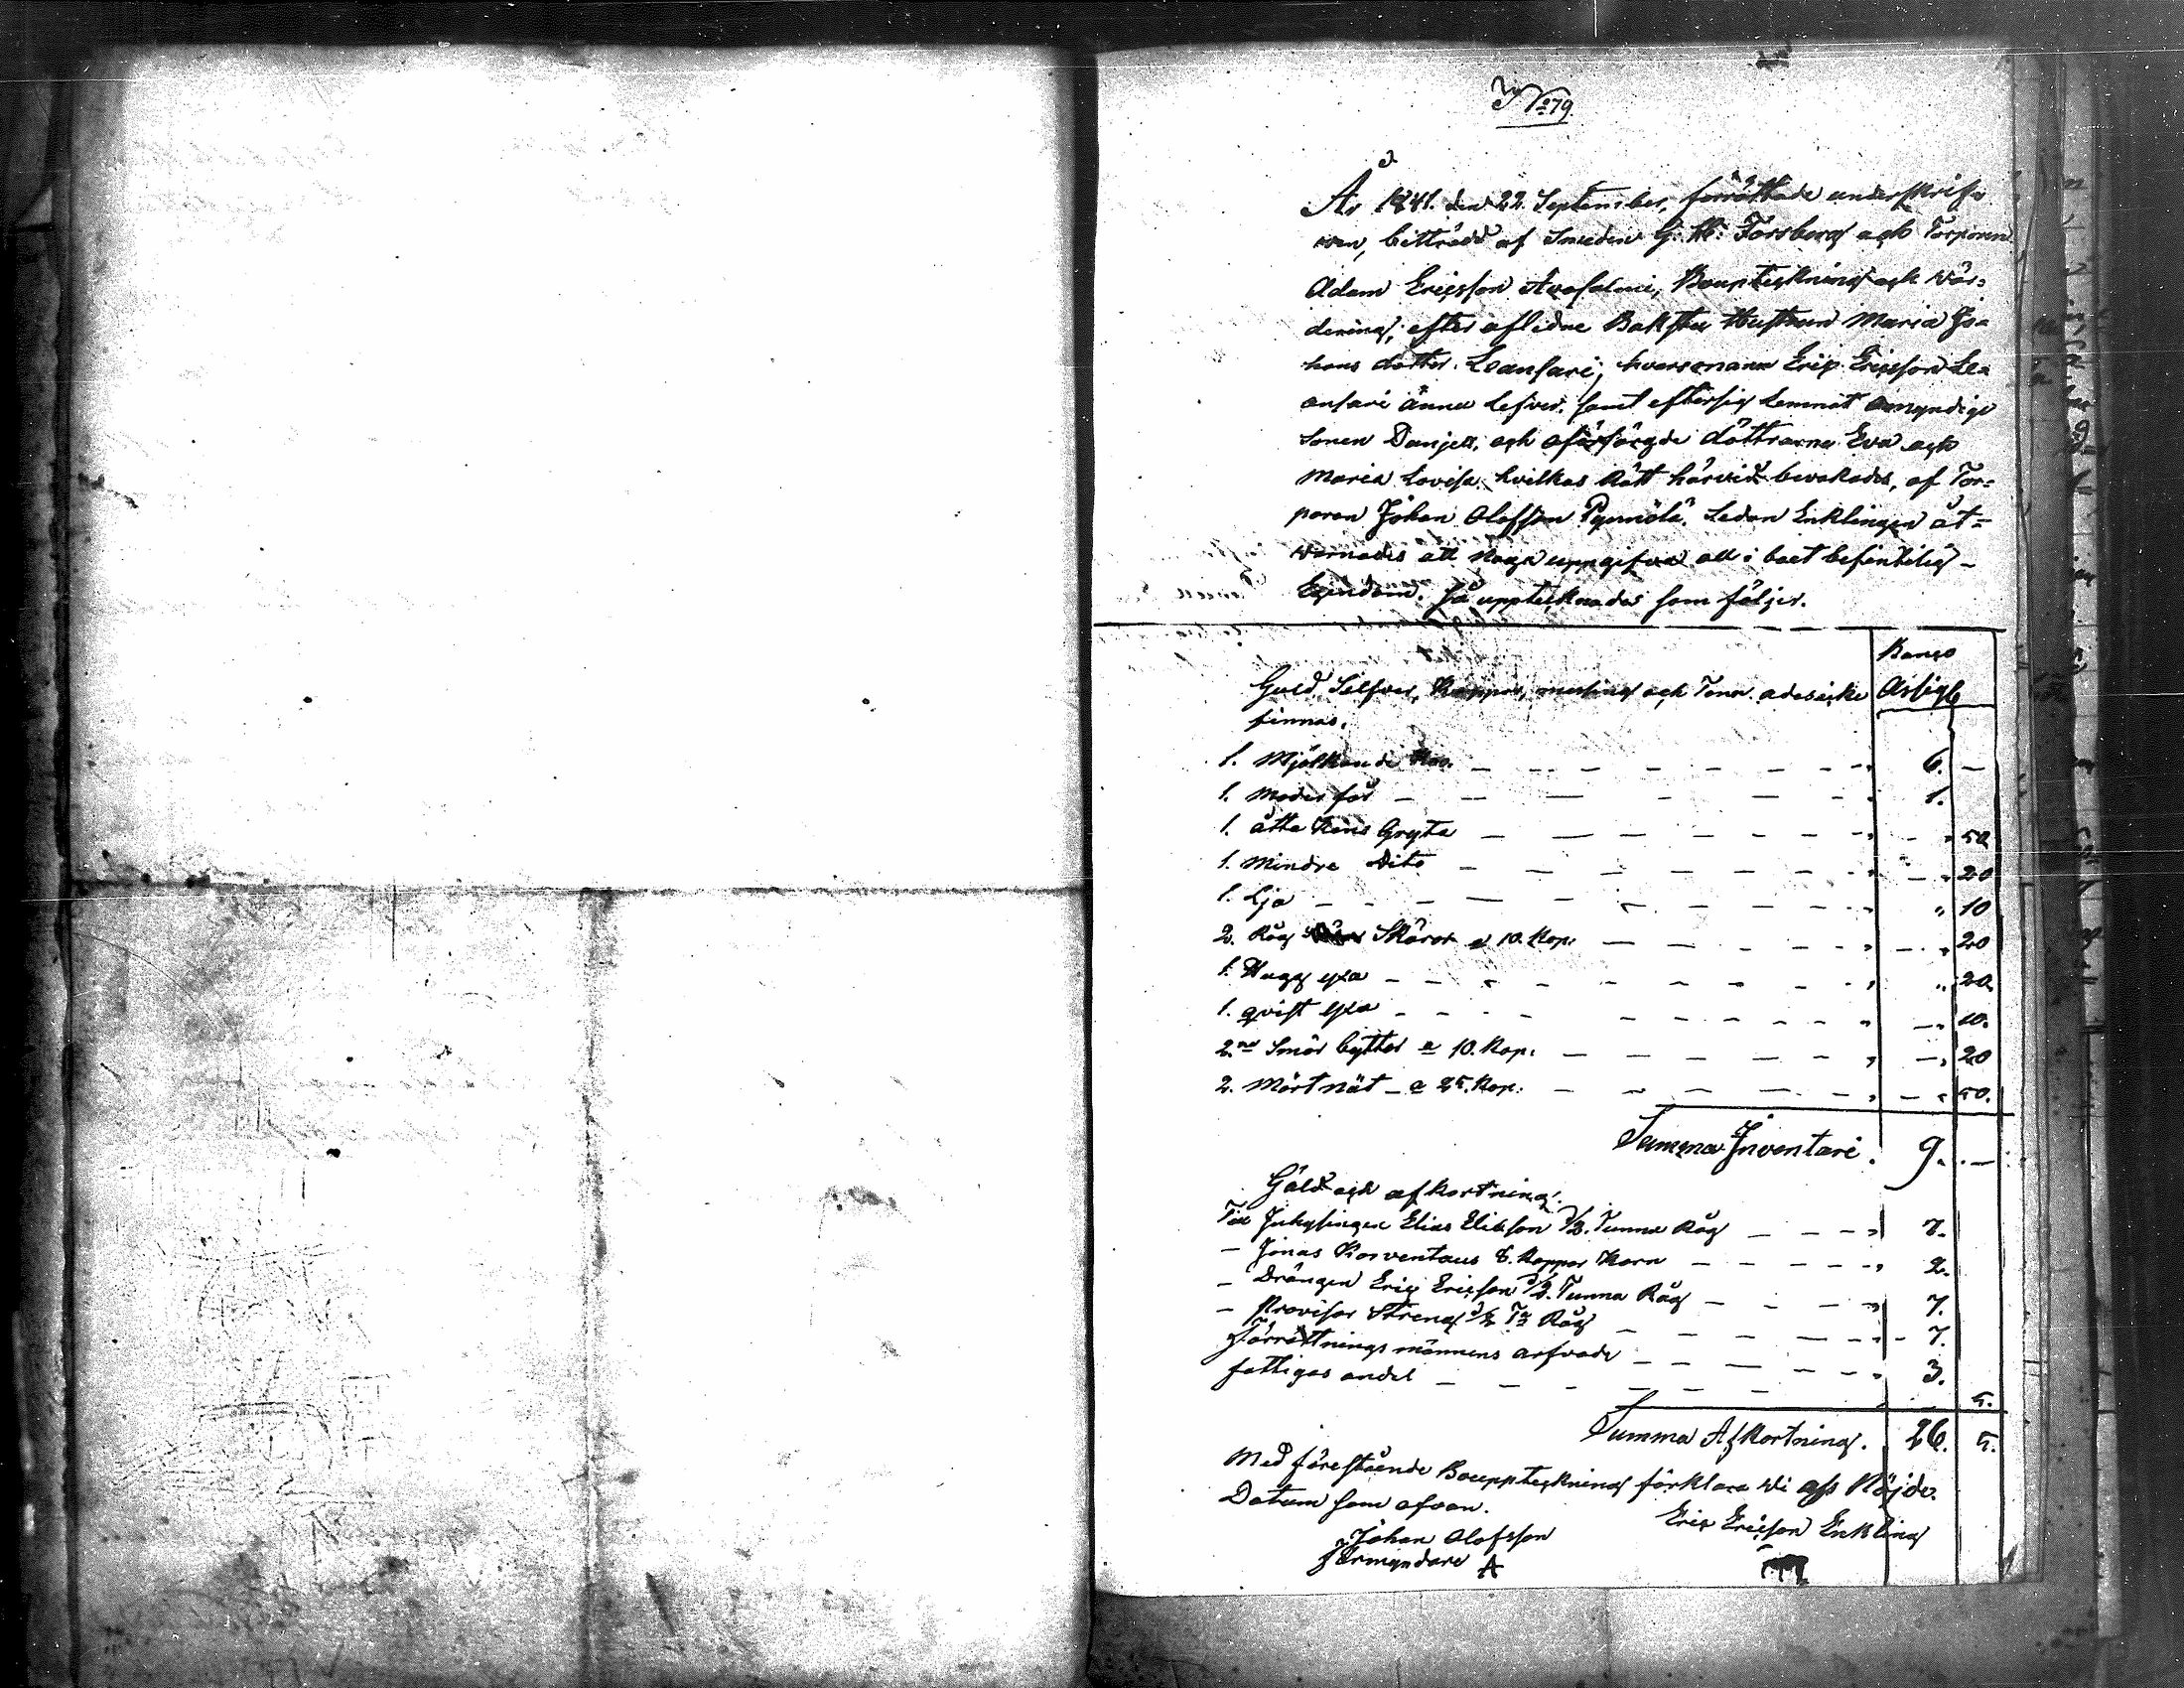 No 79.
År 1841. den 22. September, förrättade underskrif-
wen, biträdd af Smeden G. H. Forsberg och Torparen
Adam Ericsson Avasalmi, Boupteckning och wär-
dering, efter aflidne Bakstu Hustrun Maria Jo-
hans dotter Leansari, hvars mann Eric Ericsson Le-
ansari ännu lefver, samt efter sig lemnat omyndige
Sonen Danjell, och oförsörgde döttrarna Eva och
Maria Lovisa, hvilkas Rätt härvid bevakades, af Tor-
paren Johan Olofsson. Sedan Enklingen åt-
warnades att Noga uppgifva all i boet befintelig
Egendom. så upptecknades som följer.
Banco
Assign
Guld, Selfver, Koppar, mesing och Tenn
finnas.
1. Mjölkande Ko. 6. —
1. Moder får 1.
1. åtta Kans Gryta 50
1. Mindre dito 20
1. Lja 10
2. Råg Skäror a 10. Kop: 20
1. Hugg yxa 20
1. qvist yxa 10.
2.ne Smör byttor a 10. Kop: 20
2. Mört nät a 25. Kop: 50.
Summa Inventari. 9. —
Gäld och afkortning.
Till Inhysingen Elias Eliasson 1/2. Tunna Råg 7.
— Jonas Korventaus 8. Kappar Korn 2.
— Drängen Eric Ericson 1/2. Tunna Råg 7.
— Provisor Streng 1/2 Ta Råg 7.
Förrättnings männens arfvode 3.
fattigas andel 5.
Summa Afkortning. 26. 5.
Med förestående Bouppteckning förklara wi oss Nöjde.
Datum som ofvan.
Johan Olofsson Eric Ericson Enkling
förmyndare A